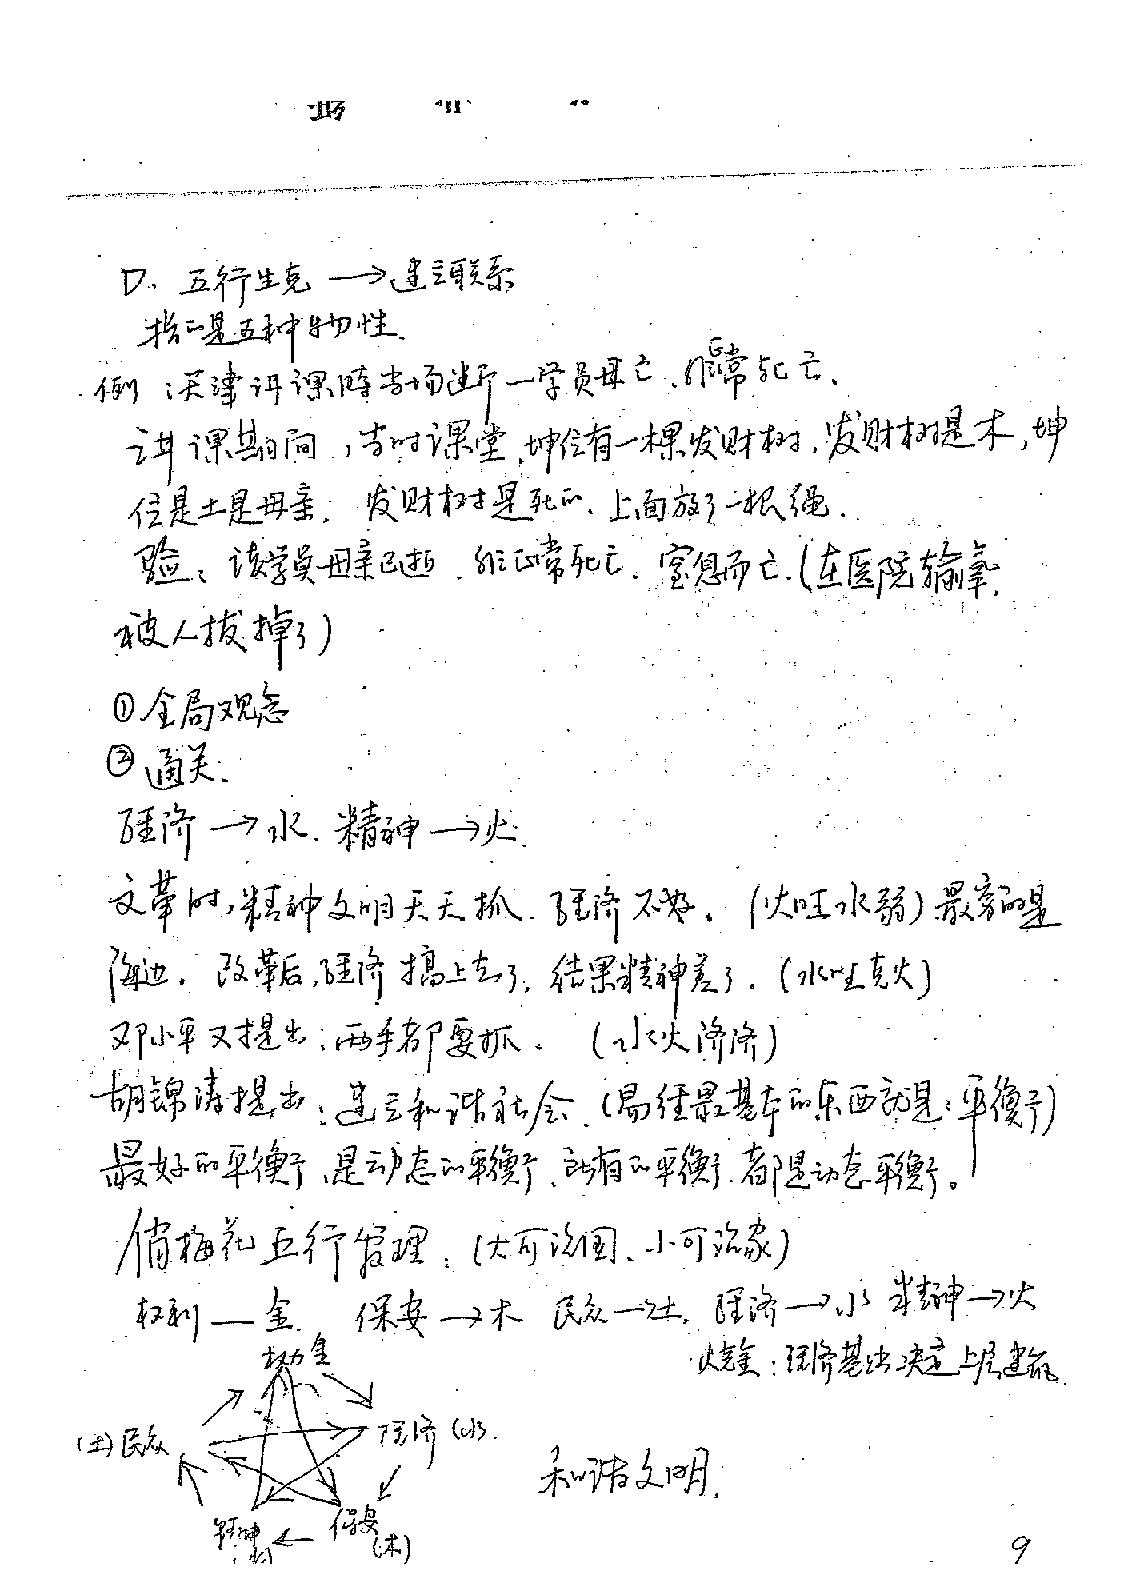 D、五行生克 → 建立联系
指的是五种物性.
例:天津讲课时当场断一学员母亡、非正常死亡.
讲课期间,当时课堂,坤位有一棵发财树,发财树是木,坤
位是土是母亲. 发财树是死的、上面放了一根绳.
验:该学员母亲已逝. 非正常死亡. 窒息而亡.(在医院输氧,
被人拔掉了)
①全局观念
②通关:
经济 → 水. 精神 → 火.
文革时,精神文明天天抓. 经济不好。(火旺水弱)最穷的是
海边. 改革后,经济搞上去了,结果精神差了.(水旺克火)
邓小平又提出:两手都要抓。(水火济济)
胡锦涛提出:建立和谐社会.(易经最基本的东西就是:平衡)
最好的平衡、是动态的平衡、所有的平衡.都是动态平衡。
梅花五行管理.(大可治国、小可治家)
权利 — 金 保安 → 木 民众 → 土. 经济 → 水 精神 → 火
:经济基础决定上层建筑.
权力 金
(土)民众
经济(水)
精神
火
保安
(木)
和谐文明.
9